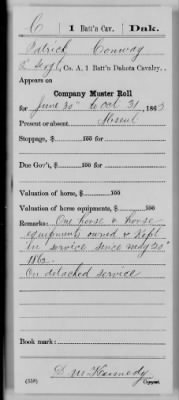 C | 1 Batt'n Cav. | Dak.
Patrick Conway
Serg't, Co. A, 1 Batt'n Dakota Cavalry.
Appears on
Company Muster Roll
for June 30" to Oct 31, 1863.
Present or absent. Absent
Stoppage, $ 100 for
Due Gov't, $ 100 for
Valuation of horse, $ 100
Valuation of horse equipments, $ 100
Remarks: One horse & horse
equipments owned & Kept
in service since May 20"
1862.
On detached service
Book mark:
D. M. Kennedy
(358) Copyist.